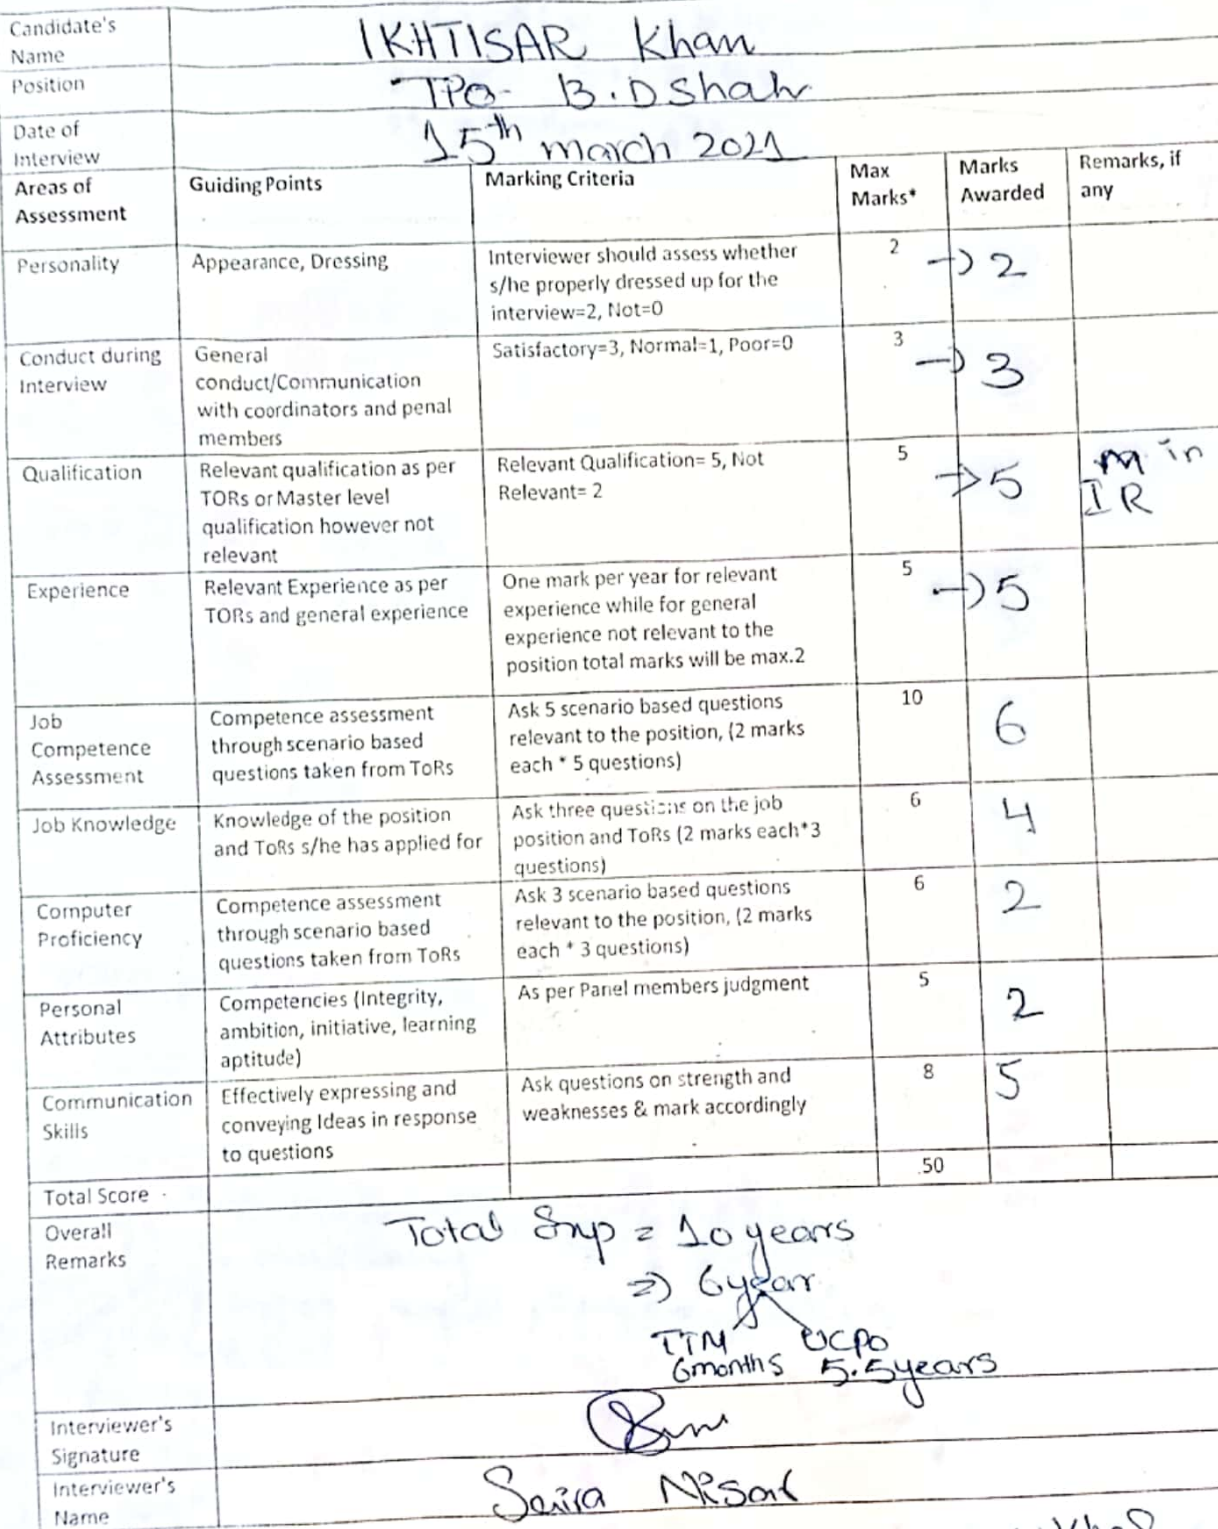 Candidate's Name
IKHTISAR Khan
Position
TPO- B.D Shah
Date of Interview
15th march 2021
Areas of Assessment | Guiding Points | Marking Criteria | Max Marks* | Marks Awarded | Remarks, if any
Personality | Appearance, Dressing | Interviewer should assess whether s/he properly dressed up for the interview=2, Not=0 | 2 | → 2
Conduct during Interview | General conduct/Communication with coordinators and penal members | Satisfactory=3, Normal=1, Poor=0 | 3 | → 3
Qualification | Relevant qualification as per TORs or Master level qualification however not relevant | Relevant Qualification= 5, Not Relevant= 2 | 5 | → 5 | m in IR
Experience | Relevant Experience as per TORs and general experience | One mark per year for relevant experience while for general experience not relevant to the position total marks will be max.2 | 5 | → 5
Job Competence Assessment | Competence assessment through scenario based questions taken from ToRs | Ask 5 scenario based questions relevant to the position, (2 marks each * 5 questions) | 10 | 6
Job Knowledge | Knowledge of the position and ToRs s/he has applied for | Ask three questions on the job position and ToRs (2 marks each*3 questions) | 6 | 4
Computer Proficiency | Competence assessment through scenario based questions taken from ToRs | Ask 3 scenario based questions relevant to the position, (2 marks each * 3 questions) | 6 | 2
Personal Attributes | Competencies (Integrity, ambition, initiative, learning aptitude) | As per Panel members judgment | 5 | 2
Communication Skills | Effectively expressing and conveying Ideas in response to questions | Ask questions on strength and weaknesses & mark accordingly | 8 | 5
Total Score | 50
Overall Remarks
Total Exp = 10 years
⇒ 6 year
TTM UCPO
6months 5.5years
Interviewer's Signature
Interviewer's Name
Saira Nisar